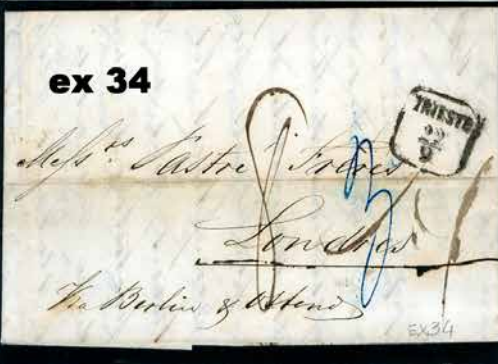 ex 34
TRIESTE
22
9
Mess.rs Pastré Frères
Londres
Via Berlin & Ostend
EX34